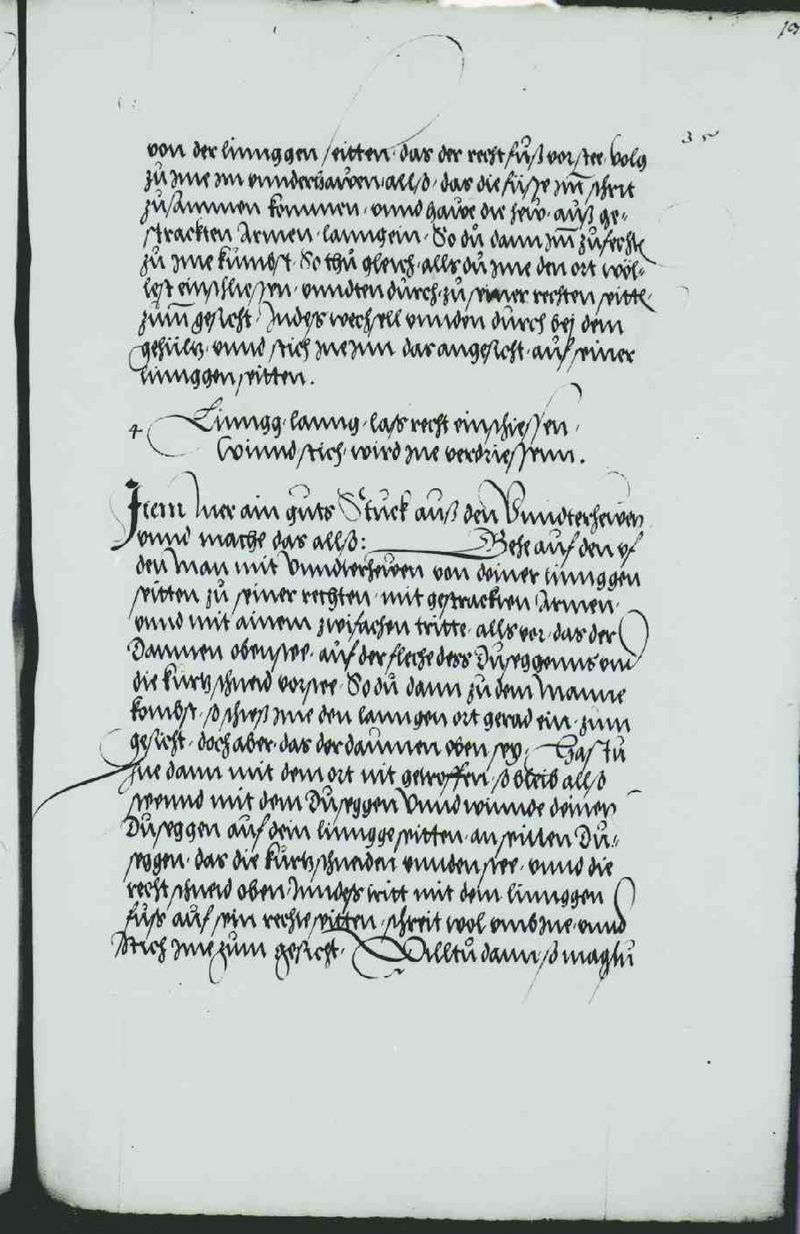 35
von der linnggen seitten. das der recht fuß vor stee. volg
zů Ime im vnnderhauen. allso. das die füsse im schrit
zůsammen kommen. vnnd haue die hew. auß ge=
strackten Armen. lanng ein. So dů dann im zůfechten
zů Ime kumbst. So thů gleich. alls dů Ime den ort wöl=
lest einschiessen. vnndten dürch. zů seiner rechten seitten.
zům gesicht. Indess wechsell vnnden dürch bej dem
gehültz. vnnd stich Ime Inn das angesicht. auf seiner
linnggen seitten.
4 Linngg. lanng. lass recht einschiessen.
Winnd stich. wird Ine verdriessenn.
Item Mer ain guts Stuck auß den Vnndterhewen
vnnd mache das allso: Gehe auf den
den Man mit Vnndterhewen von deiner linnggen
seitten zů seiner rechten. mit gestrackten Armen.
vnnd mit ainem zwifachen tritte. alls vor. das der
Daumen oben stee. auf der fleche dess Dusäggenns
die kürtz schneid vor stee. So dů dann zů dem Manne
kombst. so schieß Ime den lanngen ort gerad ein. zum
gesicht. doch aber. das der daumen oben sey. Hastu
Ine dann mit dem ort nit getroffen. so bleib allso
steend mit dem Duseggen Vnnd winnde deinen
Duseggen auf dein linngge seitten. an seinen Du=
seggen. das die kürtz schneiden vnnden stee. vnnd die
recht schneid oben. Inndess tritt mit dem linnggen
füß auf sein rechte seitten. schreit wol vmb Ine. vnnd
Stich Ime zum gesicht. Willtu dann so magstu